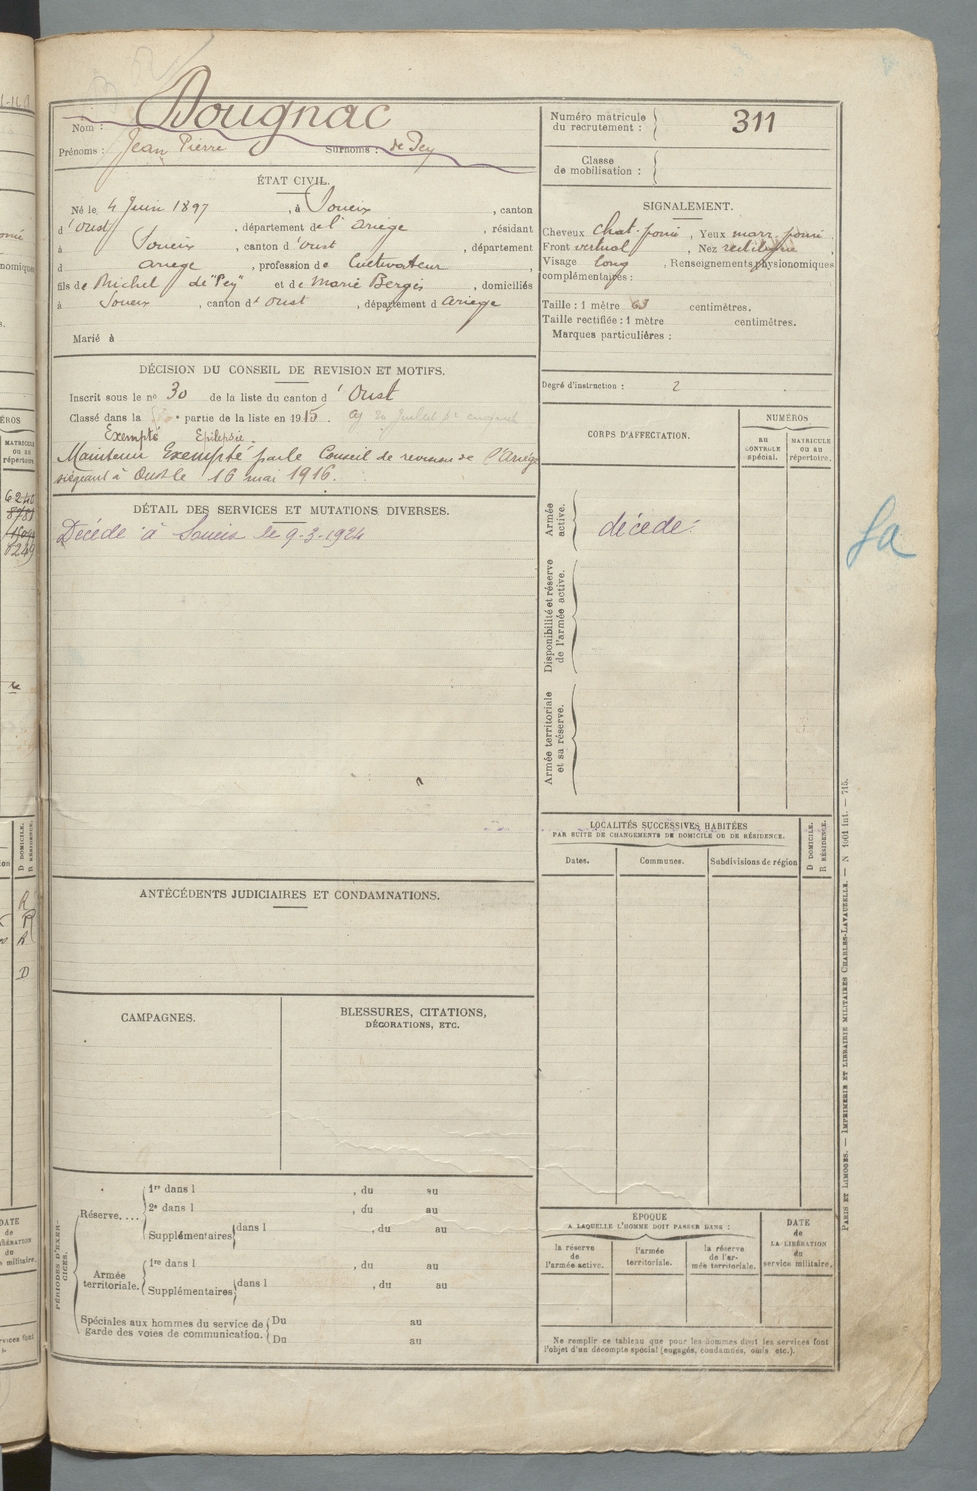 Nom : Dougnac
Prénoms : Jean Pierre Surnoms : de Pey
ÉTAT CIVIL.
Né le 4 Juin 1897, à Soueix, canton
d'Oust, département de l'Ariège, résidant
à Soueix, canton d'Oust, département
d Ariège, profession de Cultivateur
fils de Michel de "Pey" et de Marie Bergès, domiciliés
à Soueix, canton d'Oust, département d Ariège
Marié à
DÉCISION DU CONSEIL DE REVISION ET MOTIFS.
Inscrit sous le no 30 de la liste du canton d' Oust
Classé dans la partie de la liste en 1915.
Exempté Epilepsie.
Maintenu Exempté par le Conseil de revision de l'Ariège
siégeant à Oust le 16 mai 1916.
DÉTAIL DES SERVICES ET MUTATIONS DIVERSES.
Décédé à Soueix le 9-3-1924
ANTÉCÉDENTS JUDICIAIRES ET CONDAMNATIONS.
CAMPAGNES.
BLESSURES, CITATIONS,
DÉCORATIONS, ETC.
PÉRIODES D'EXERCICES.
Réserve....
1re dans l , du au
2e dans l , du au
Supplémentaires dans l , du au
Armée
territoriale.
1re dans l , du au
Supplémentaires dans l , du au
Spéciales aux hommes du service de
garde des voies de communication.
Du au
Du au
Numéro matricule
du recrutement : 311
Classe
de mobilisation :
SIGNALEMENT.
Cheveux chat. foncé, Yeux marr. foncé
Front vertical, Nez rectiligne
Visage long, Renseignements physionomiques
complémentaires :
Taille : 1 mètre 63 centimètres.
Taille rectifiée : 1 mètre centimètres.
Marques particulières :
Degré d'instruction : 2
CORPS D'AFFECTATION.
NUMÉROS
AU
CONTROLE
spécial.
MATRICULE
OU AU
répertoire.
Armée
active.
décédé.
Disponibilité et réserve
de l'armée active.
Armée territoriale
et sa réserve.
LOCALITÉS SUCCESSIVES HABITÉES
PAR SUITE DE CHANGEMENTS DE DOMICILE OU DE RÉSIDENCE.
Dates.
Communes.
Subdivisions de région
D DOMICILE.
R RÉSIDENCE.
EPOQUE
A LAQUELLE L'HOMME DOIT PASSER DANS :
la réserve
de
l'armée active.
l'armée
territoriale.
la réserve
de l'ar-
mée territoriale.
DATE
de
LA LIBÉRATION
du
service militaire.
Ne remplir ce tableau que pour les hommes dont les services font
l'objet d'un décompte spécial (engagés, condamnés, omis etc.).
PARIS ET LIMOGES. — IMPRIMERIE ET LIBRAIRIE MILITAIRES CHARLES-LAVAUZELLE. — N 1001 int. — 715.